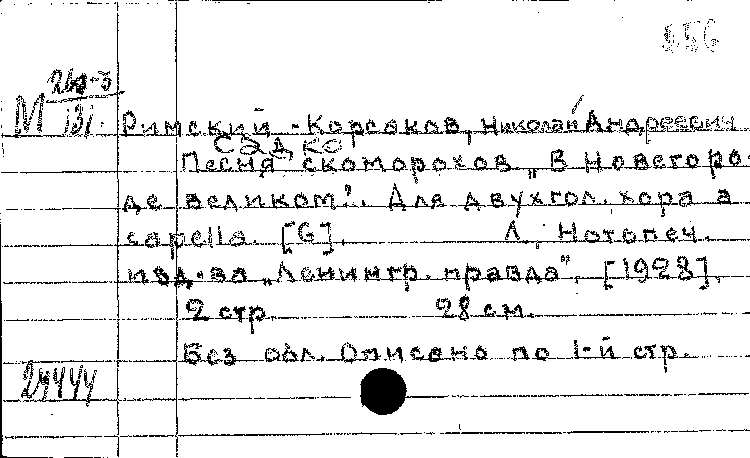 256
М 260-3
131.
Римский-Корсаков, Николай Андреевич
Садко
Песня скоморохов „В Новегоро-
де великом". Для двухгол. хора а
capella. [G]. Л., Нотопеч.
изд-ва „Ленингр. правда", [1928].
2 стр. 28 см.
Без обл. Описано по 1-й стр.
29444